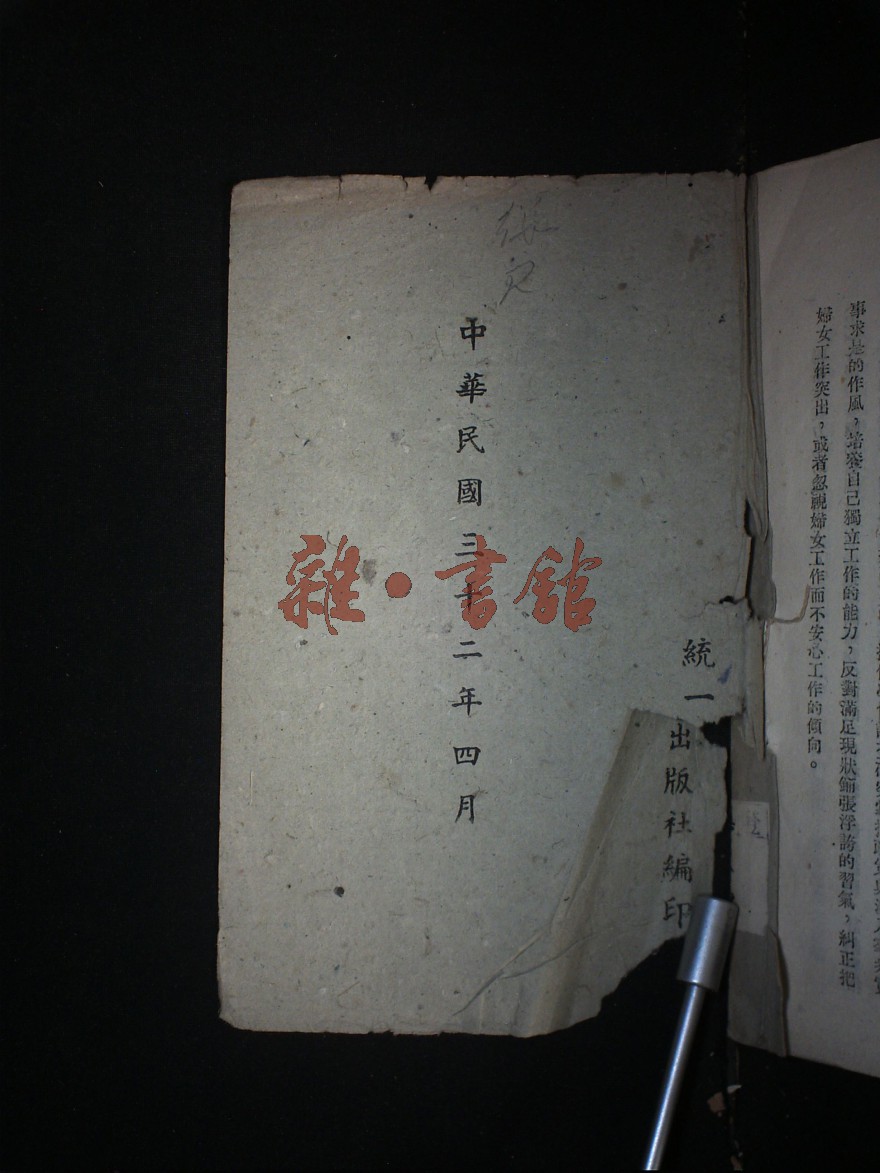 事求是的作風，培養自己獨立工作的能力，反對滿足現狀鋪張浮誇的習氣，糾正把
婦女工作突出，或者忽視婦女工作而不安心工作的傾向。
統一出版社編印
中華民國三十二年四月
雜·書館